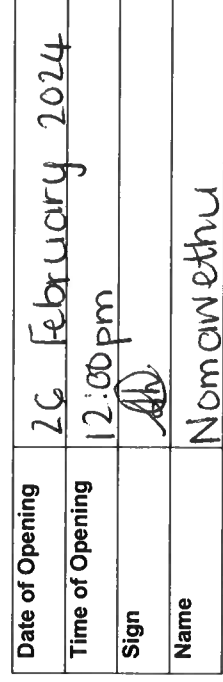 Date of Opening 26 February 2024
Time of Opening 12:00pm
Sign
Name Nomawethu